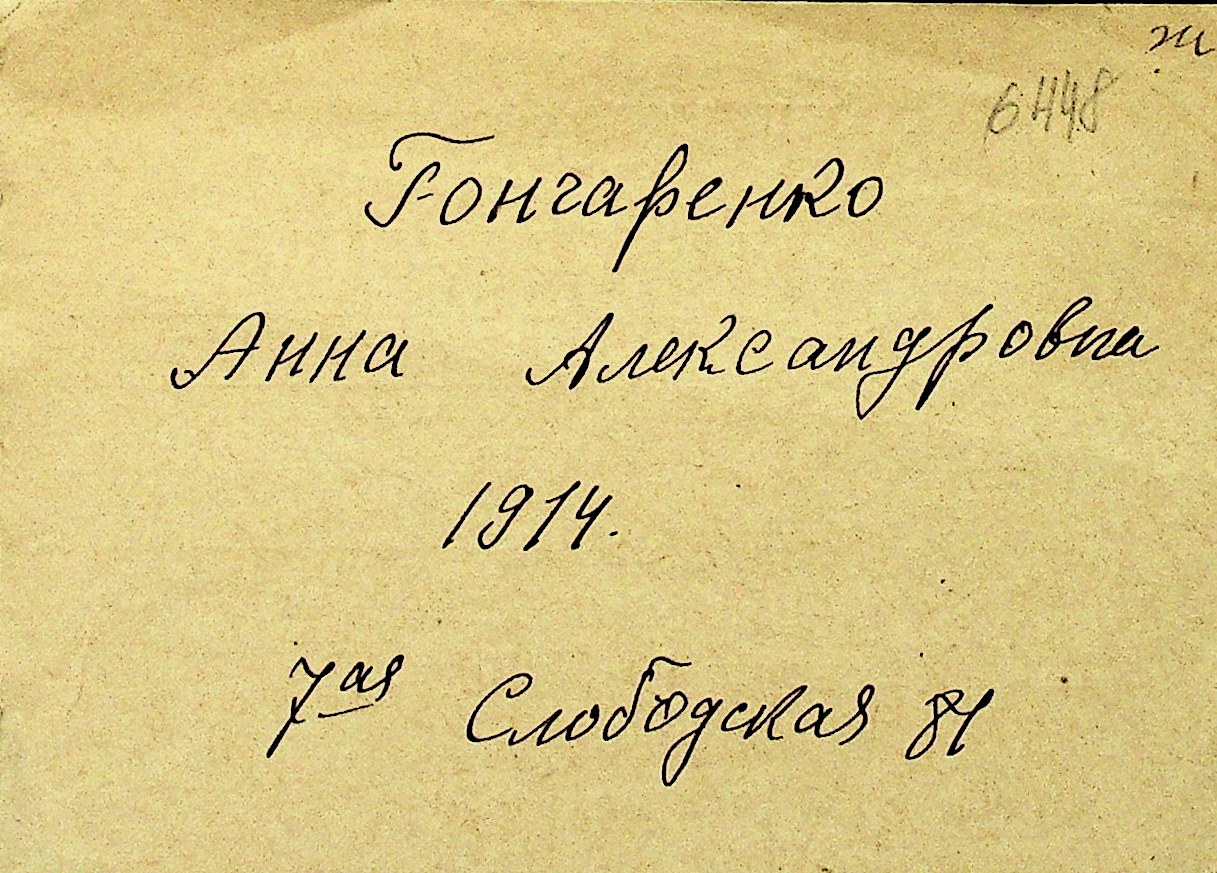 6448
Гончаренко
Анна Александровна
1914.
7ая Слободская 81